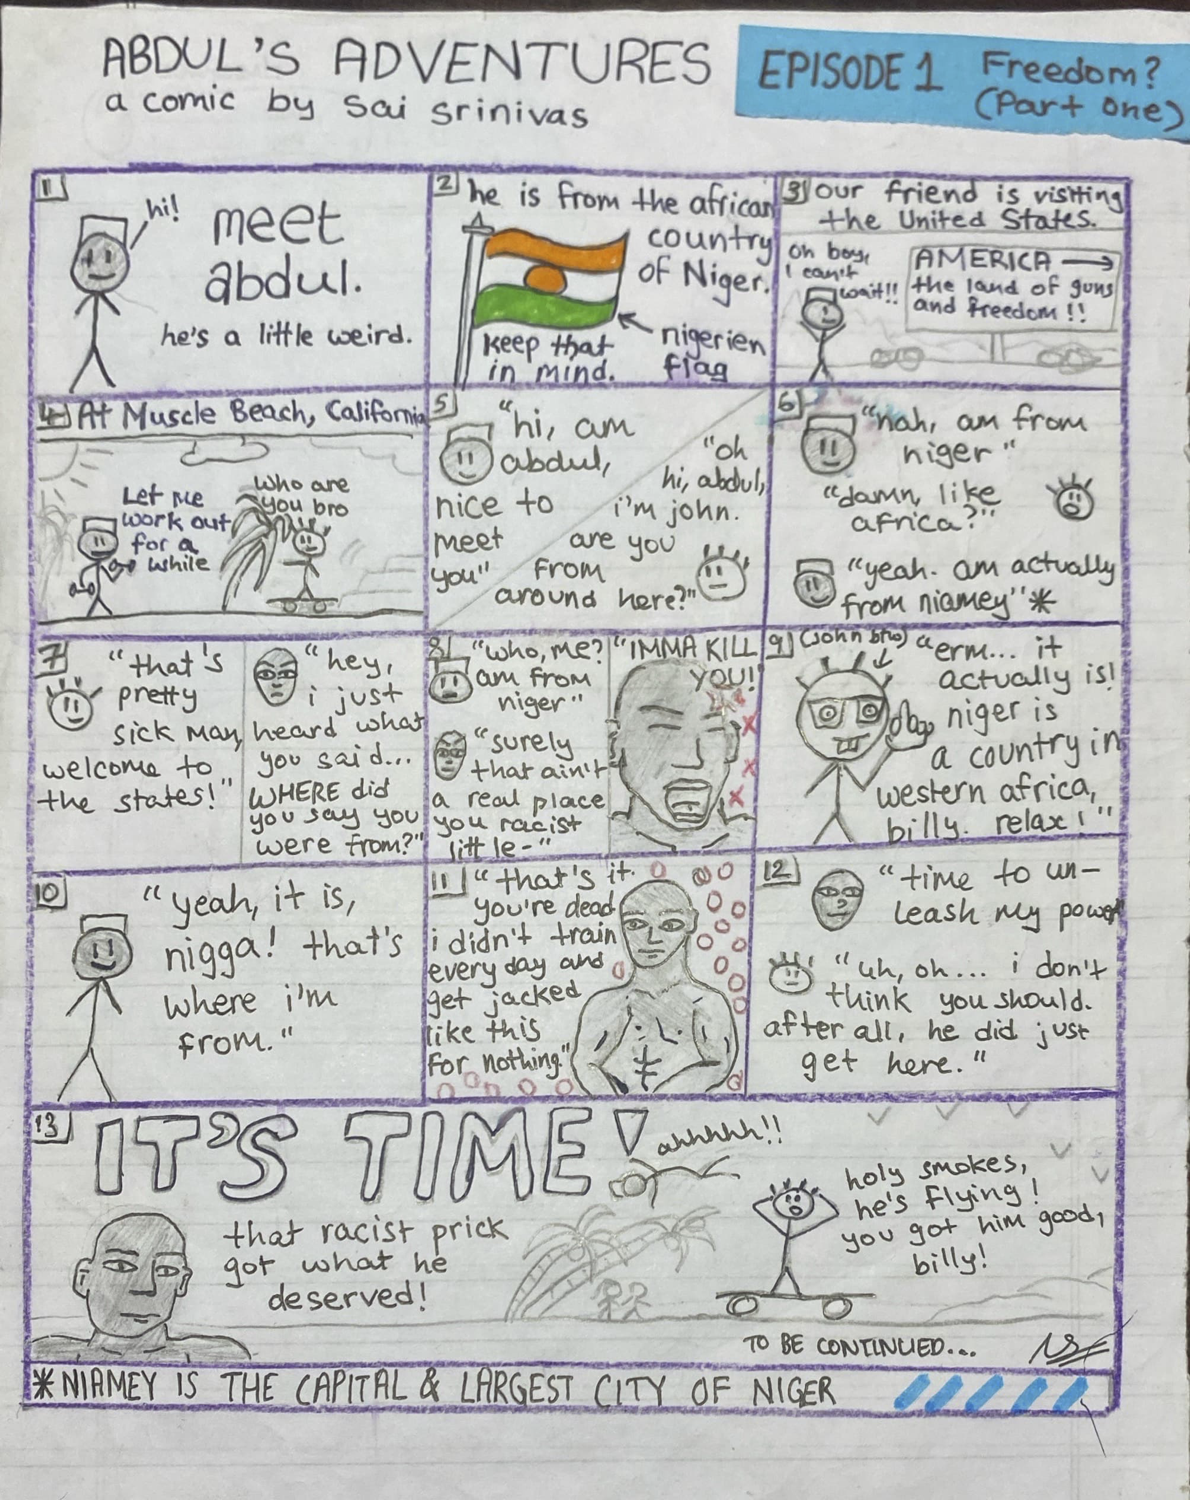 ABDUL'S ADVENTURES
a comic by Sai Srinivas
EPISODE 1 Freedom?
(Part one)
1
hi!
meet
abdul.
he's a little weird.
2
he is from the african
country
of Niger.
nigerien
flag
keep that
in mind.
3
our friend is visiting
the United States.
oh boy,
i can't
wait!!
AMERICA →
the land of guns
and freedom!!
4
At Muscle Beach, California
Let me
work out
for a
while
Who are
you bro
5
"hi, am
abdul,
nice to
meet
you"
"oh
hi, abdul,
i'm john.
are you
from
around here?"
6
"nah, am from
niger"
"damn, like
africa?"
"yeah. am actually
from niamey"*
7
"that's
pretty
sick man,
welcome to
the states!"
"hey,
i just
heard what
you said...
WHERE did
you say you
were from?"
8
"who, me?
am from
niger"
"surely
that ain't
a real place
you racist
little-"
"IMMA KILL
YOU!"
9
(john btw)
"erm... it
actually is!
niger is
a country in
western africa,
billy. relax!"
10
"yeah, it is,
nigga! that's
where i'm
from."
11
"that's it.
you're dead
i didn't train
every day and
get jacked
like this
for nothing"
12
"time to un-
leash my power
"uh, oh... i don't
think you should.
after all, he did just
get here."
13
IT'S TIME!
ahhhhh!!
that racist prick
got what he
deserved!
holy smokes,
he's flying!
you got him good,
billy!
TO BE CONTINUED...
*NIAMEY IS THE CAPITAL & LARGEST CITY OF NIGER